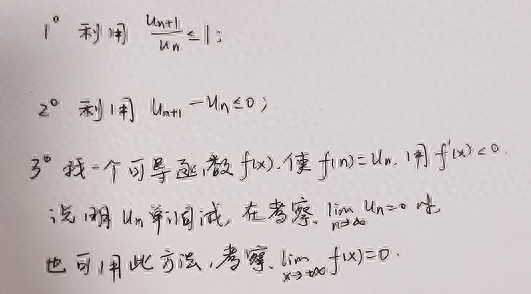 1° 利用 \frac{u_{n+1}}{u_n} ≤ 1;
2° 利用 u_{n+1} - u_n ≤ 0;
3° 找一个可导函数 f(x).使 f(n)=u_n. 用 f'(x)<0.
说明 u_n 单调减, 在考察 \lim_{n→∞} u_n=0 时
也可用此方法,考察 \lim_{x→+∞} f(x)=0.